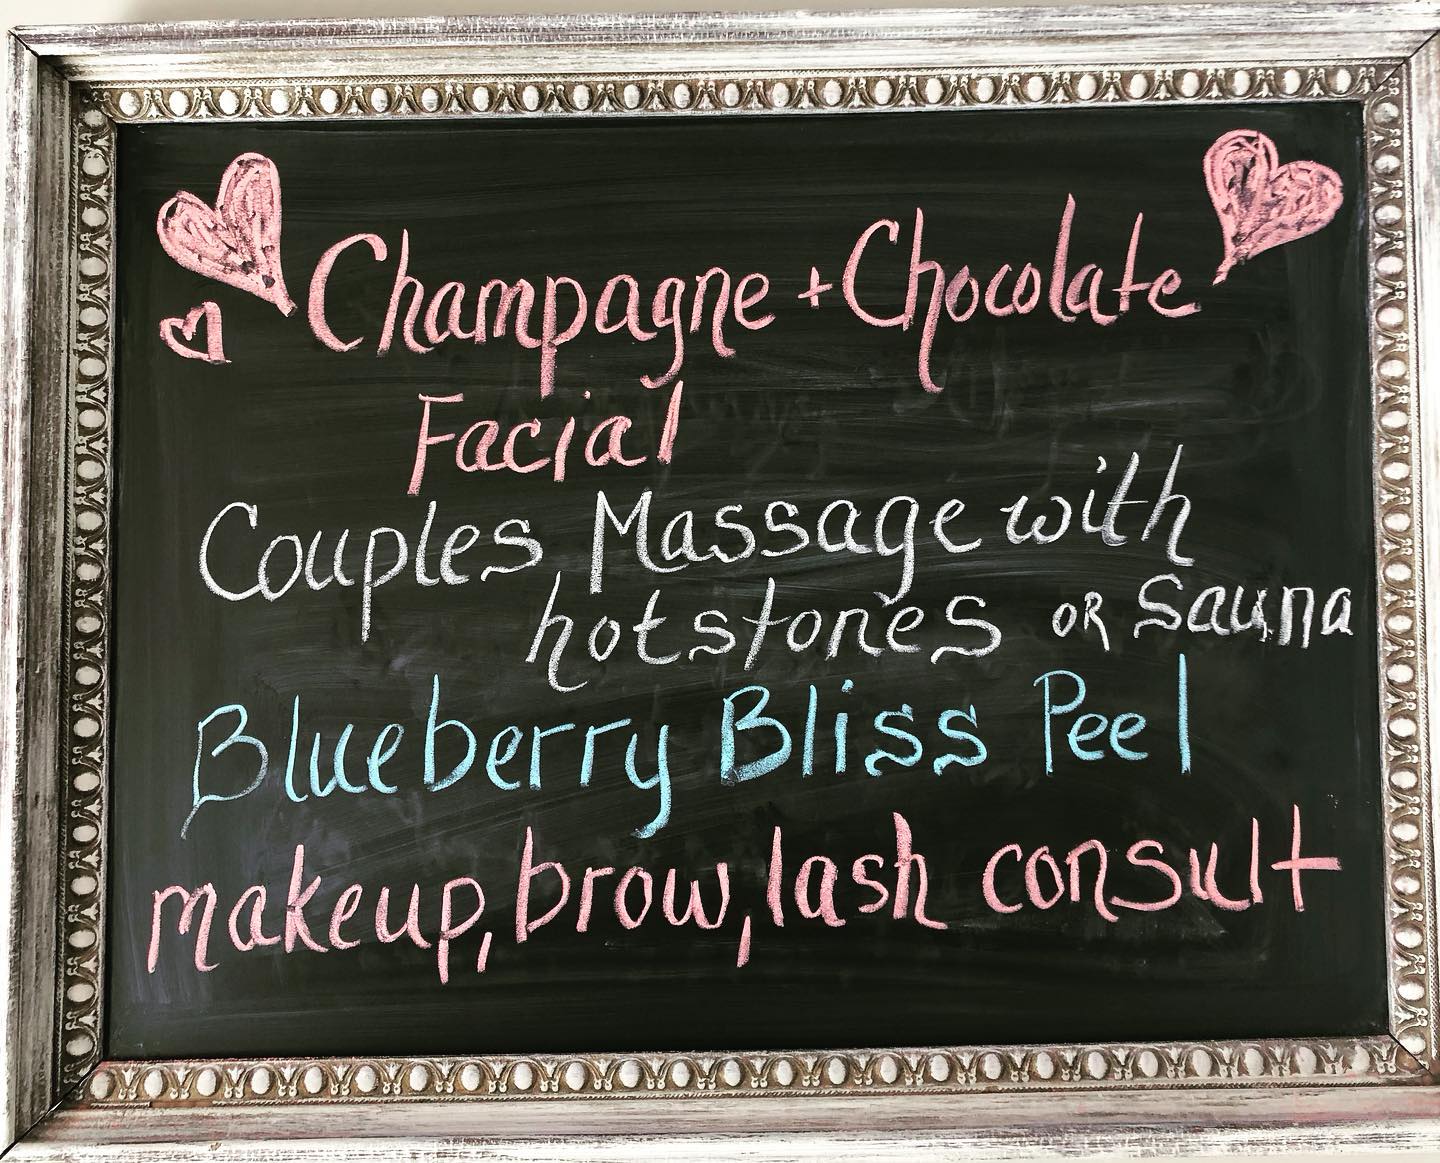 Champagne + Chocolate
Facial
Couples Massage with
hotstones OR Sauna
Blueberry Bliss Peel
makeup, brow, lash consult